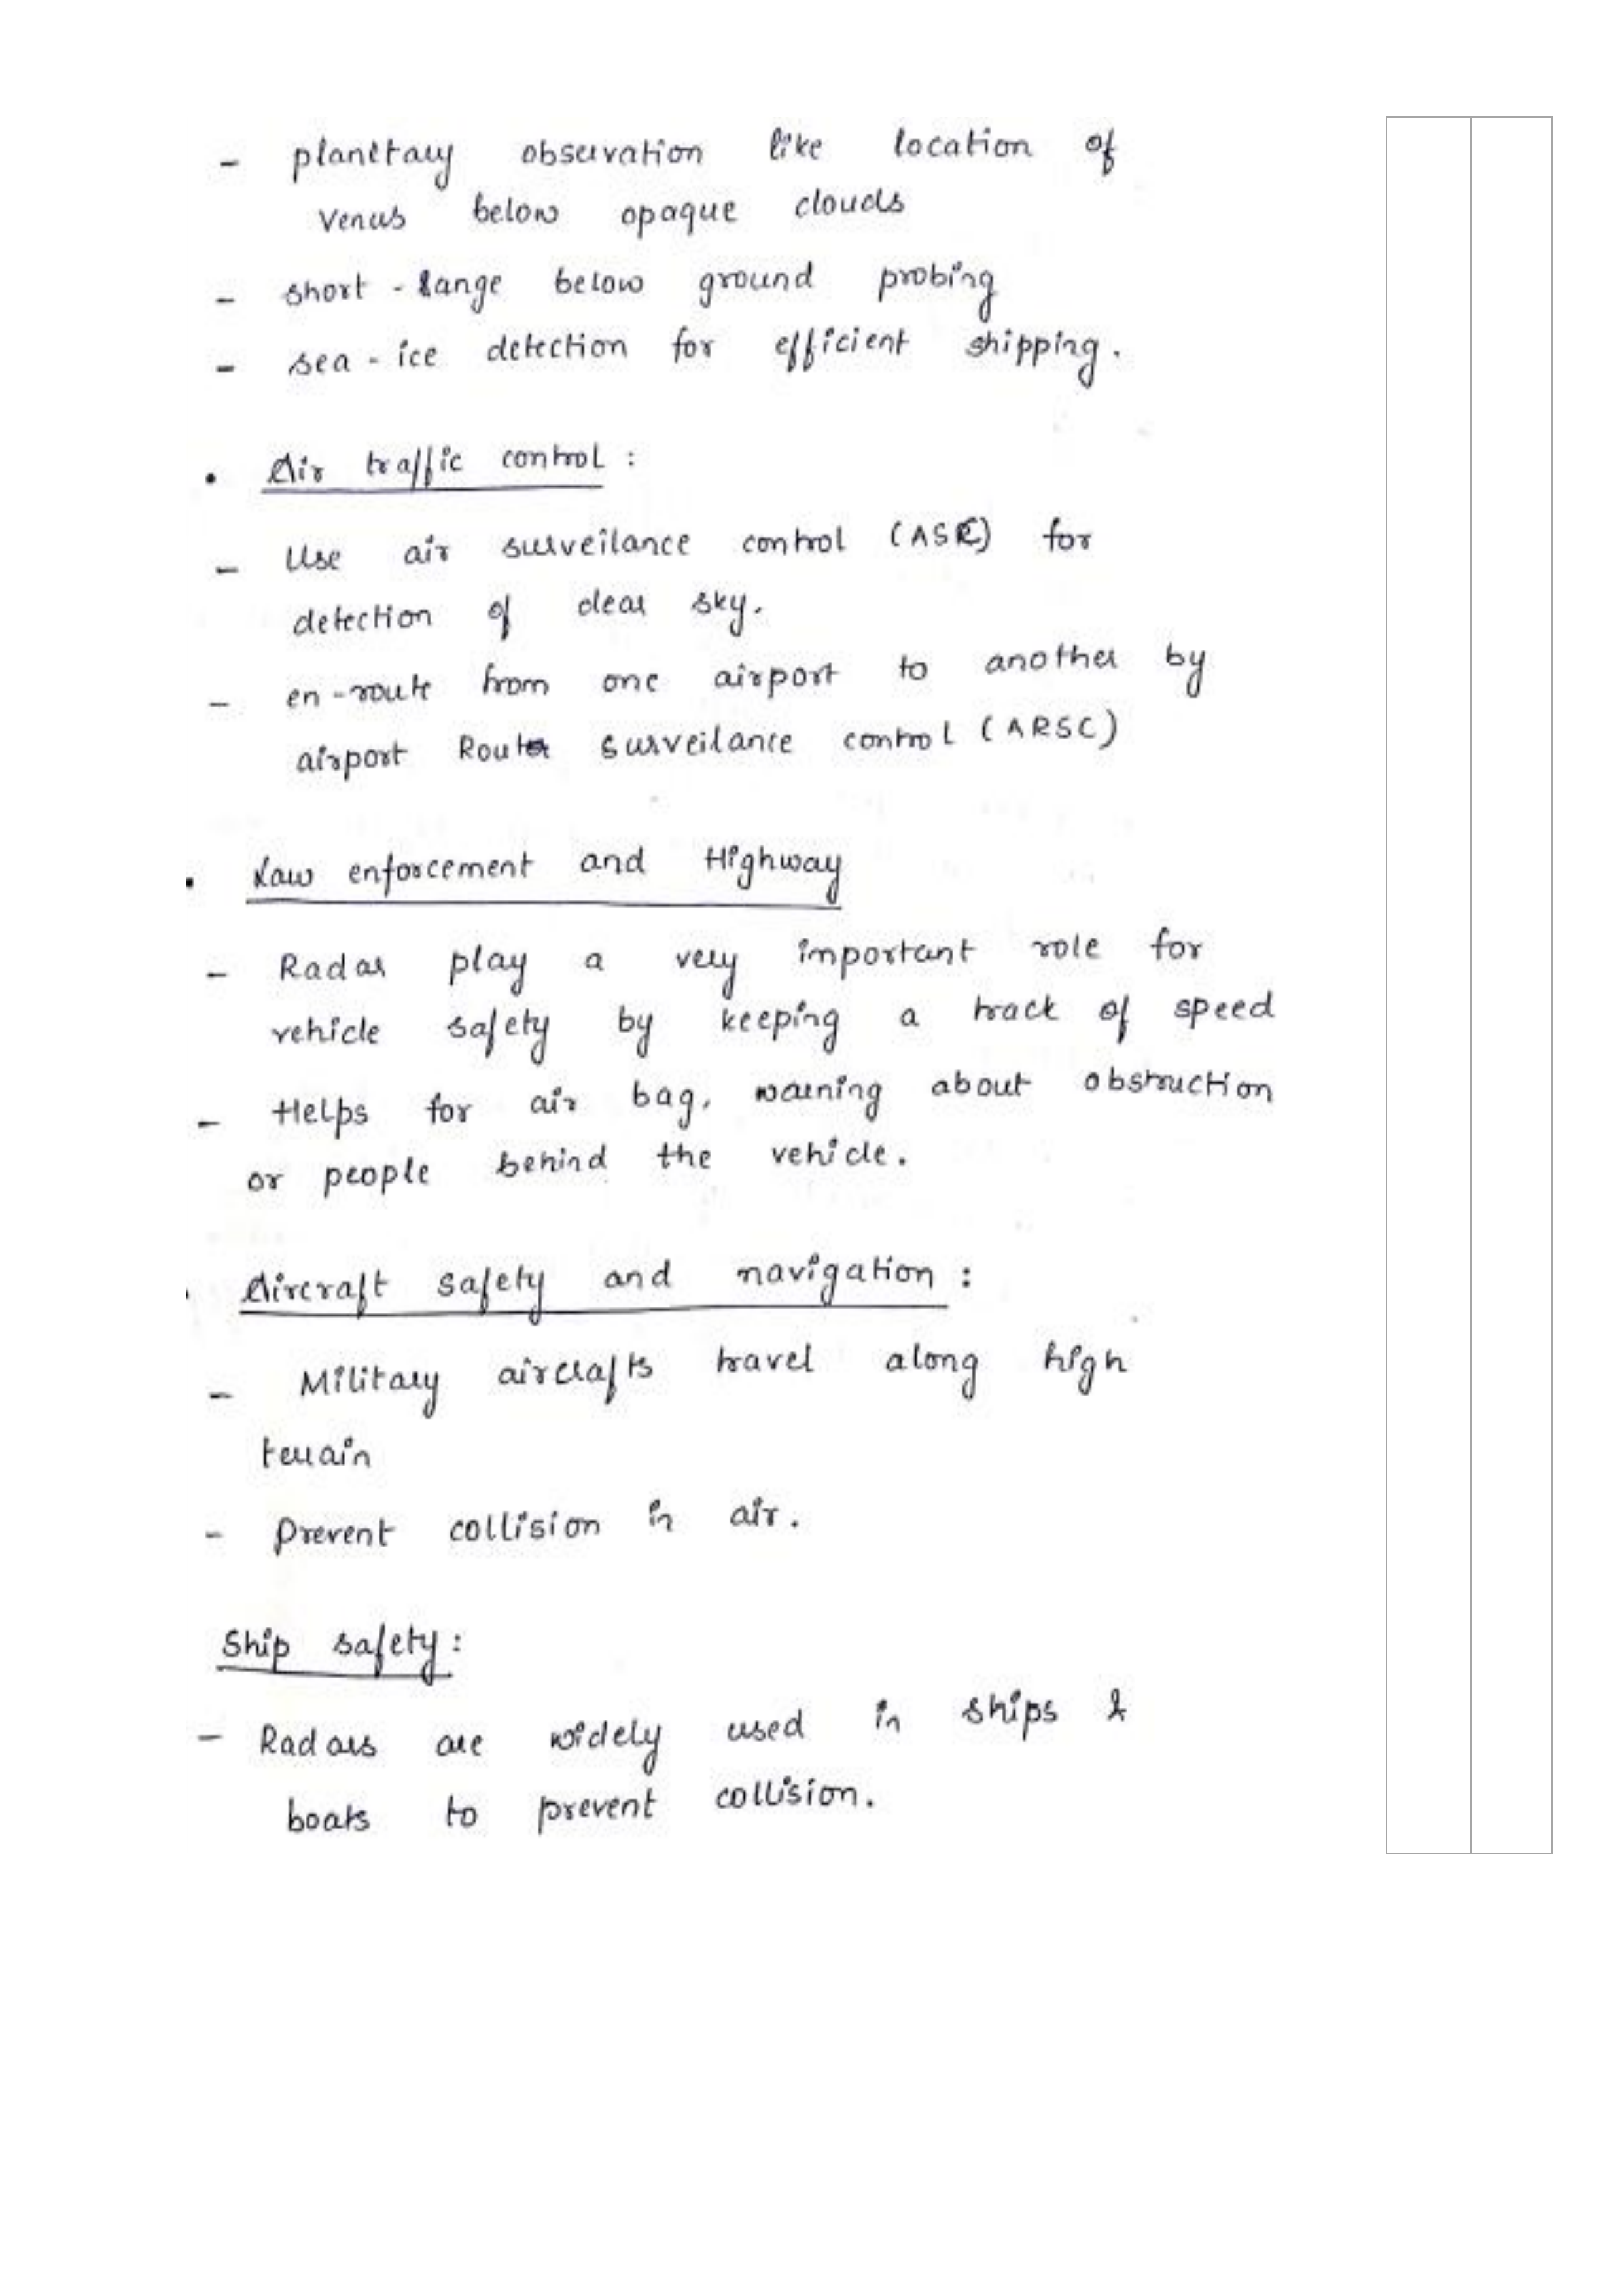 - planetary observation like location of
Venus below opaque clouds
- short - range below ground probing
- sea - ice detection for efficient shipping.
• Air traffic control :
- Use air surveilance control (ASC) for
detection of clear sky.
- en-route from one airport to another by
airport Route surveilance control (ARSC)
• Law enforcement and Highway
- Radar play a very important role for
vehicle safety by keeping a track of speed
- Helps for air bag, warning about obstruction
or people behind the vehicle.
• Aircraft safety and navigation :
- Military aircrafts travel along high
terrain
- Prevent collision in air.
Ship safety :
- Radars are widely used in ships &
boats to prevent collision.